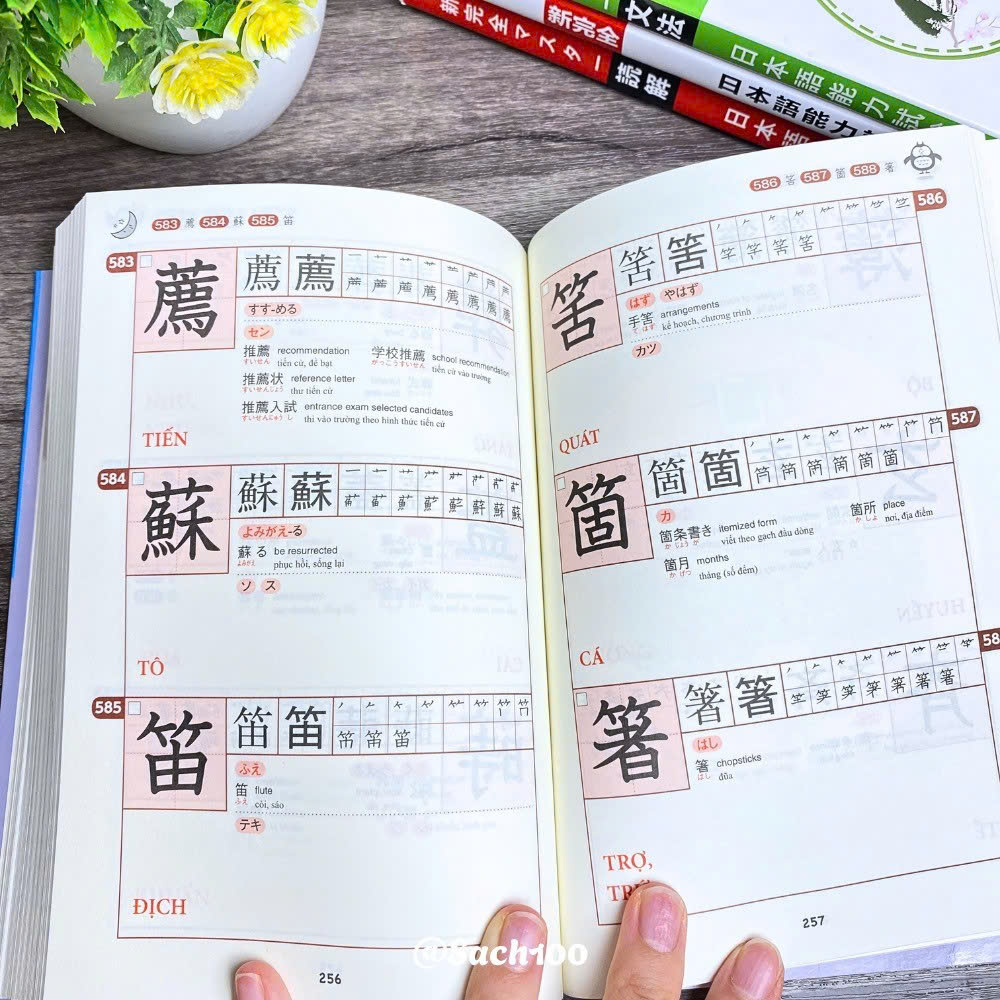 文法
日本語能力試
新完全
日本語能力
新完全マスター 読解
日本語
583 薦 584 蘇 585 笛
583
薦 薦 薦
すす-める
セン
推薦 recommendation
すいせん tiến cử, đề bạt
学校推薦 school recommendation
がっこうすいせん tiến cử vào trường
推薦状 reference letter
すいせんじょう thư tiến cử
推薦入試 entrance exam selected candidates
すいせんにゅうし thi vào trường theo hình thức tiến cử
TIẾN
584
蘇 蘇 蘇
よみがえ-る
蘇る be resurrected
よみがえ phục hồi, sống lại
ソ ス
TÔ
585
笛 笛 笛
ふえ
笛 flute
ふえ còi, sáo
テキ
ĐỊCH
256
586 筈 587 箇 588 箸
586
筈 筈 筈
はず やはず
手筈 arrangements
てはず kế hoạch, chương trình
カツ
QUÁT
587
箇 箇 箇
カ
箇条書き itemized form
かじょうが viết theo gạch đầu dòng
箇所 place
かしょ nơi, địa điểm
箇月 months
かげつ tháng (số đếm)
CÁ
58
箸 箸 箸
はし
箸 chopsticks
はし đũa
TRỢ,
257
@Sach100